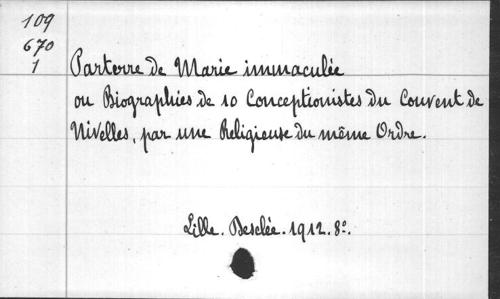 109
670
1
Parterre de Marie immaculée
ou Biographies de 10 Conceptionistes du Couvent de
Nivelles, par une Religieuse du même Ordre.
Lille. Desclée. 1912. 8º.